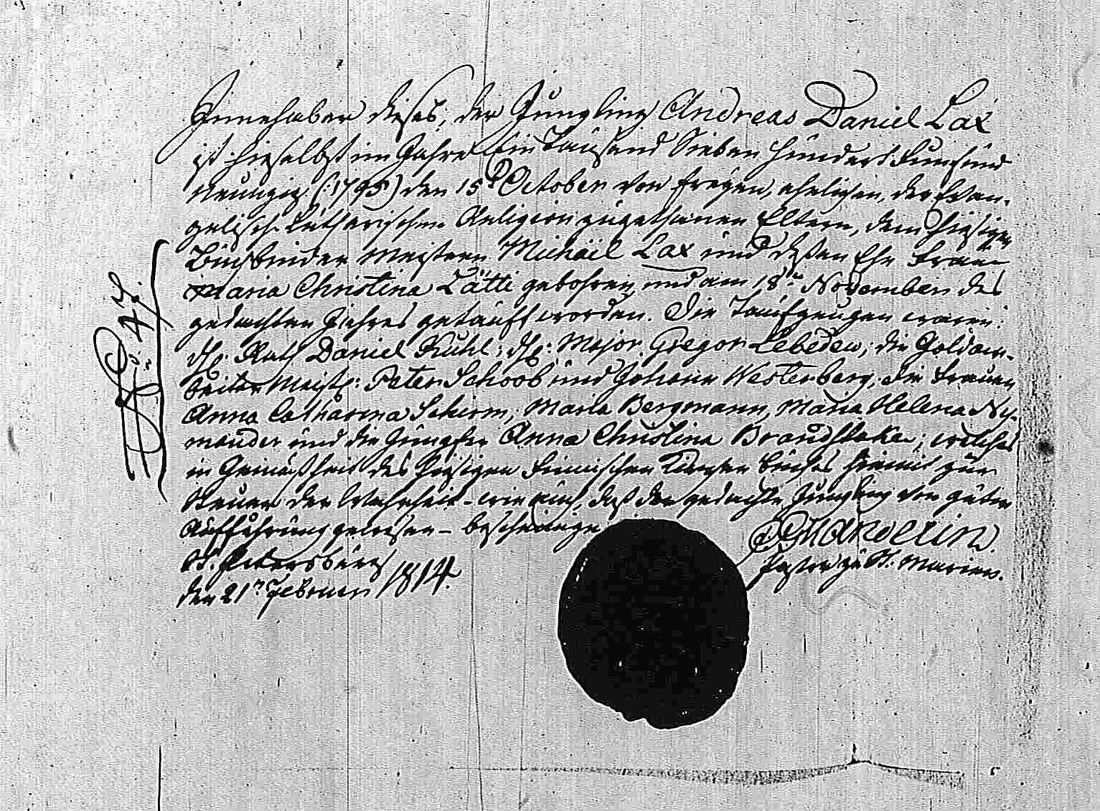 Innehaber dieses, der Jüngling Andreas Daniel Lax
ist hieselbst im Jahre Ein Tausend Sieben Hundert Fünf und
Neunzig (:1795) den 15ⁿ October von freyen, ehelichen, der Evan-
gelisch Lutherischen Religion zugethanen Eltern, dem hiesigen
Buchbinder Meistern Michaël Lax und deßen Ehe Frau
Maria Christina Lätti gebohren, und am 18ⁿ November des
gedachten Jahres getauft worden. Die Taufzeugen waren:
Hr: Rath Daniel Kuhl; Hr: Major Gregor Lebedew; die Goldar-
beiter Meistr: Peter Schoob und Johann Westerberg; die Frauen
Anna Catharina Schirm, Maria Bergmann, Maria Helena Ny-
mander und die Jungfer Anna Christina Brandstaka; welches
in Gemäßheit des hiesigen Finnischen Kirchen Buches hiemit zur
Steuer der Wahrheit – wie auch, daß der gedachte Jüngling von guter
Aufführung gewesen – bescheinige
Mandelin.
St. Petersburg
Pastor zu St. Marien.
den 21ⁿ Februar 1814
No. 47.